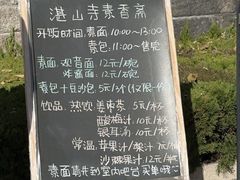 湛山寺素香斋
开饭时间:素面 10:00—13:00
素包:11:00~售完
素面:观音面 12元/碗
炸酱面 12元/碗
素包+豆沙包 5元/3个(仅限一份)
饮品:热饮 姜枣茶 5元/杯
酸梅汁 10元/杯
银耳汤 10元/杯
常温:苹果汁/果汁 元/杯
沙棘果汁 12元/杯
素面请先到室内吧台买单哦~